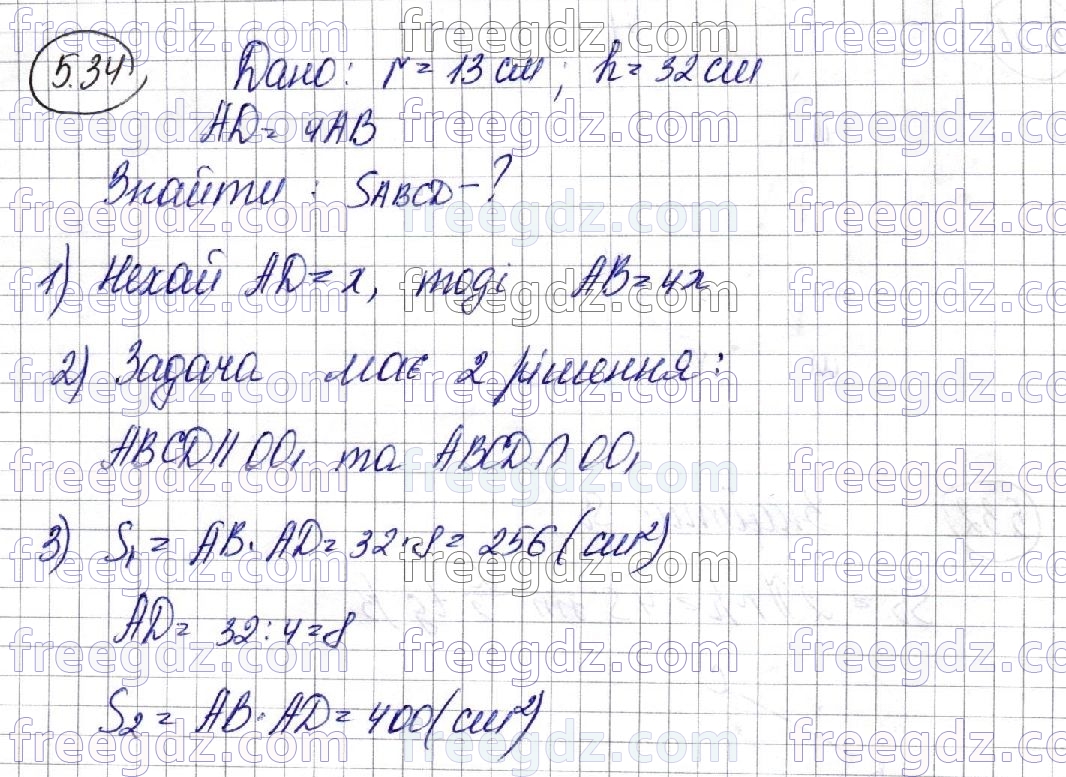 5.34, Дано: r = 13 см; h = 32 см
AD = 4AB
Знайти: SABCD - ?
1) Нехай AD = x, тоді AB = 4x
2) Задача має 2 рішення:
ABCD || OO₁ та ABCD ∩ OO₁
3) S₁ = AB · AD = 32 · 8 = 256 (см²)
AD = 32 : 4 = 8
S₂ = AB · AD = 400 (см²)
freegdz.com